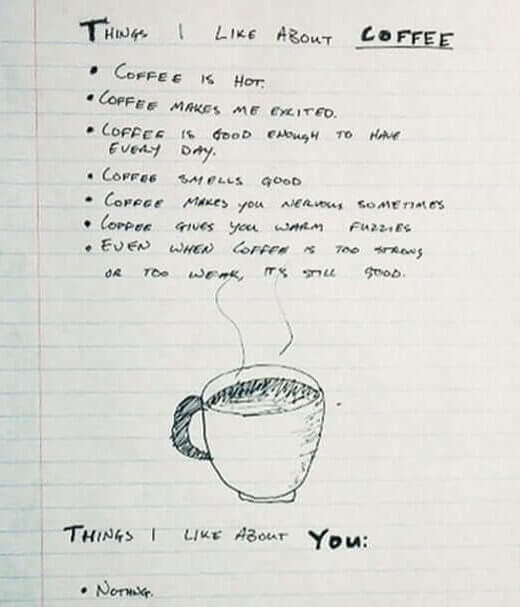 THINGS I LIKE ABOUT COFFEE
• COFFEE IS HOT.
• COFFEE MAKES ME EXCITED.
• COFFEE IS GOOD ENOUGH TO HAVE
EVERY DAY.
• COFFEE SMELLS GOOD
• COFFEE MAKES YOU NERVOUS SOMETIMES
• COFFEE GIVES YOU WARM FUZZIES
• EVEN WHEN COFFEE IS TOO STRONG
OR TOO WEAK, IT'S STILL GOOD.
THINGS I LIKE ABOUT YOU:
• NOTHING.